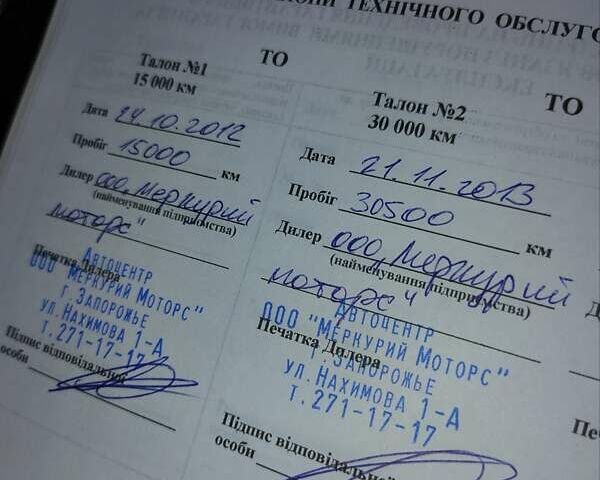 ТЕХНІЧНОГО ОБСЛУГО
ТО
Талон №1
15 000 км
Дата 24.10.2012
Пробіг 15000 км
Дилер ООО „Меркурий
(найменування підприємства)
Моторс"
Печатка Дилера
Автоцентр
ООО "Меркурий Моторс"
г. Запорожье
ул. Нахимова 1-А
т. 271-17-17
Підпис відповідальної
особи
ТО
Талон №2
30 000 км
Дата 21.11.2013
Пробіг 30500 км
Дилер ООО „Меркурий
(найменування підприємства)
Моторс"
Автоцентр
ООО "Меркурий Моторс"
Печатка Дилера
г. Запорожье
ул. Нахимова 1-А
т. 271-17-17
Підпис відповідальної
особи